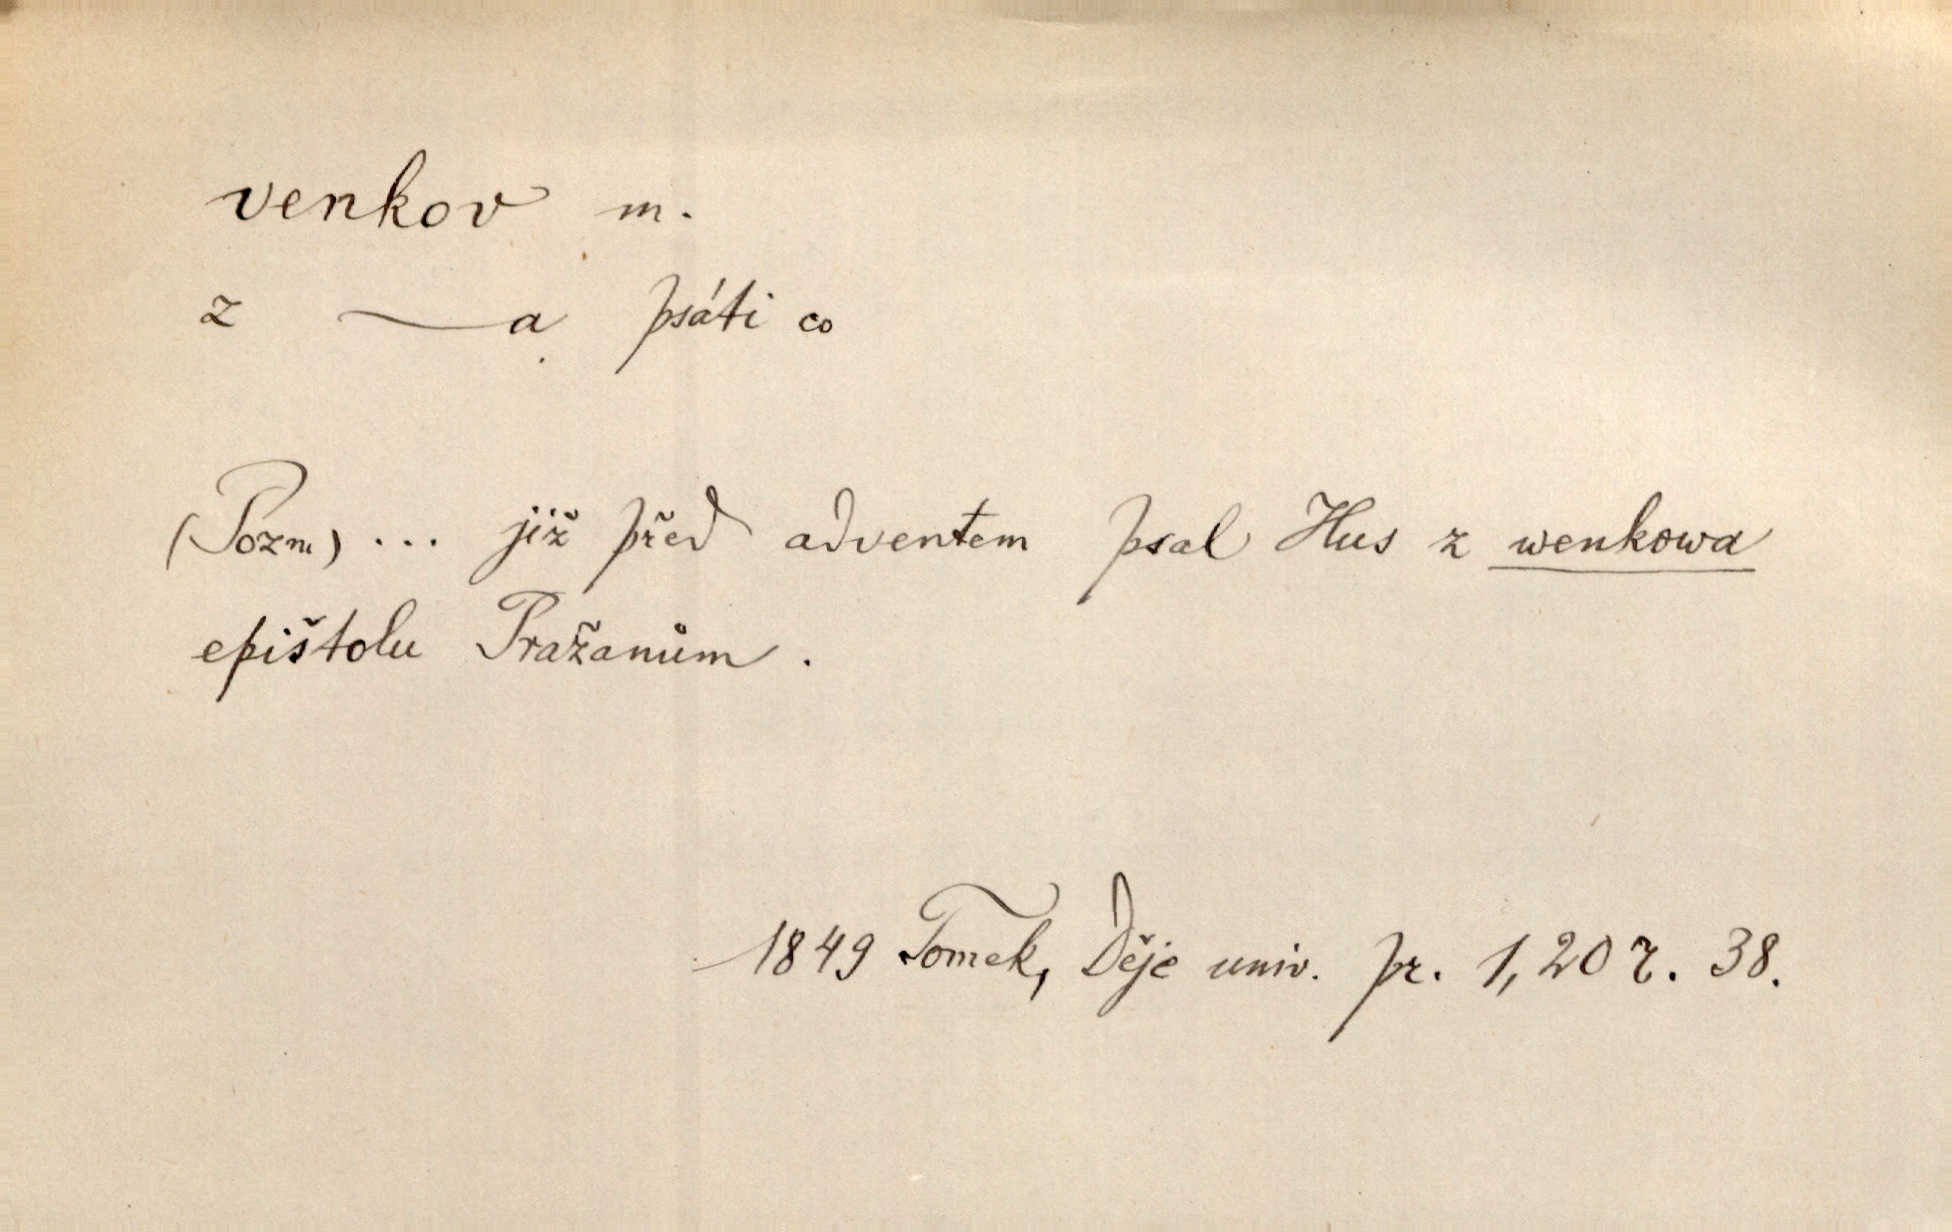 venkov m.
z —a psáti co
(Pozn) ... již před adventem psal Hus z wenkowa
epištolu Pražanům.
1849 Tomek, Děje univ. pr. 1, 207. 38.